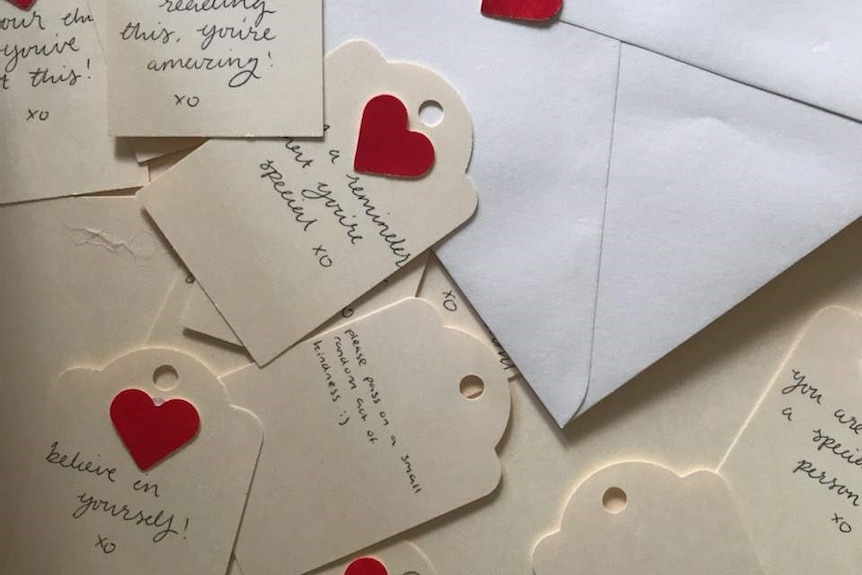 youve
this!
xo
reading
this, you're
amazing!
xo
a reminder
you're
special xo
xo
please pass on a small
random act of
kindness :)
believe in
yourself!
xo
you are
a
person
xo